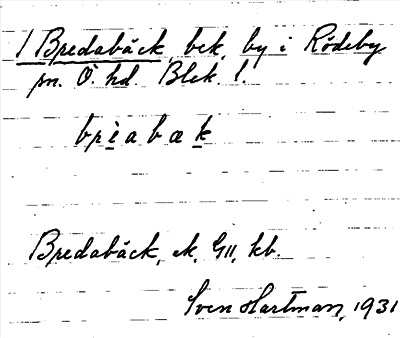 1 Bredabäck, bek, by i Rödeby
sn. Ö. hd. Blek. l.
briabæk
Bredabäck, ek. G11, kb.
Sven Hartman, 1931